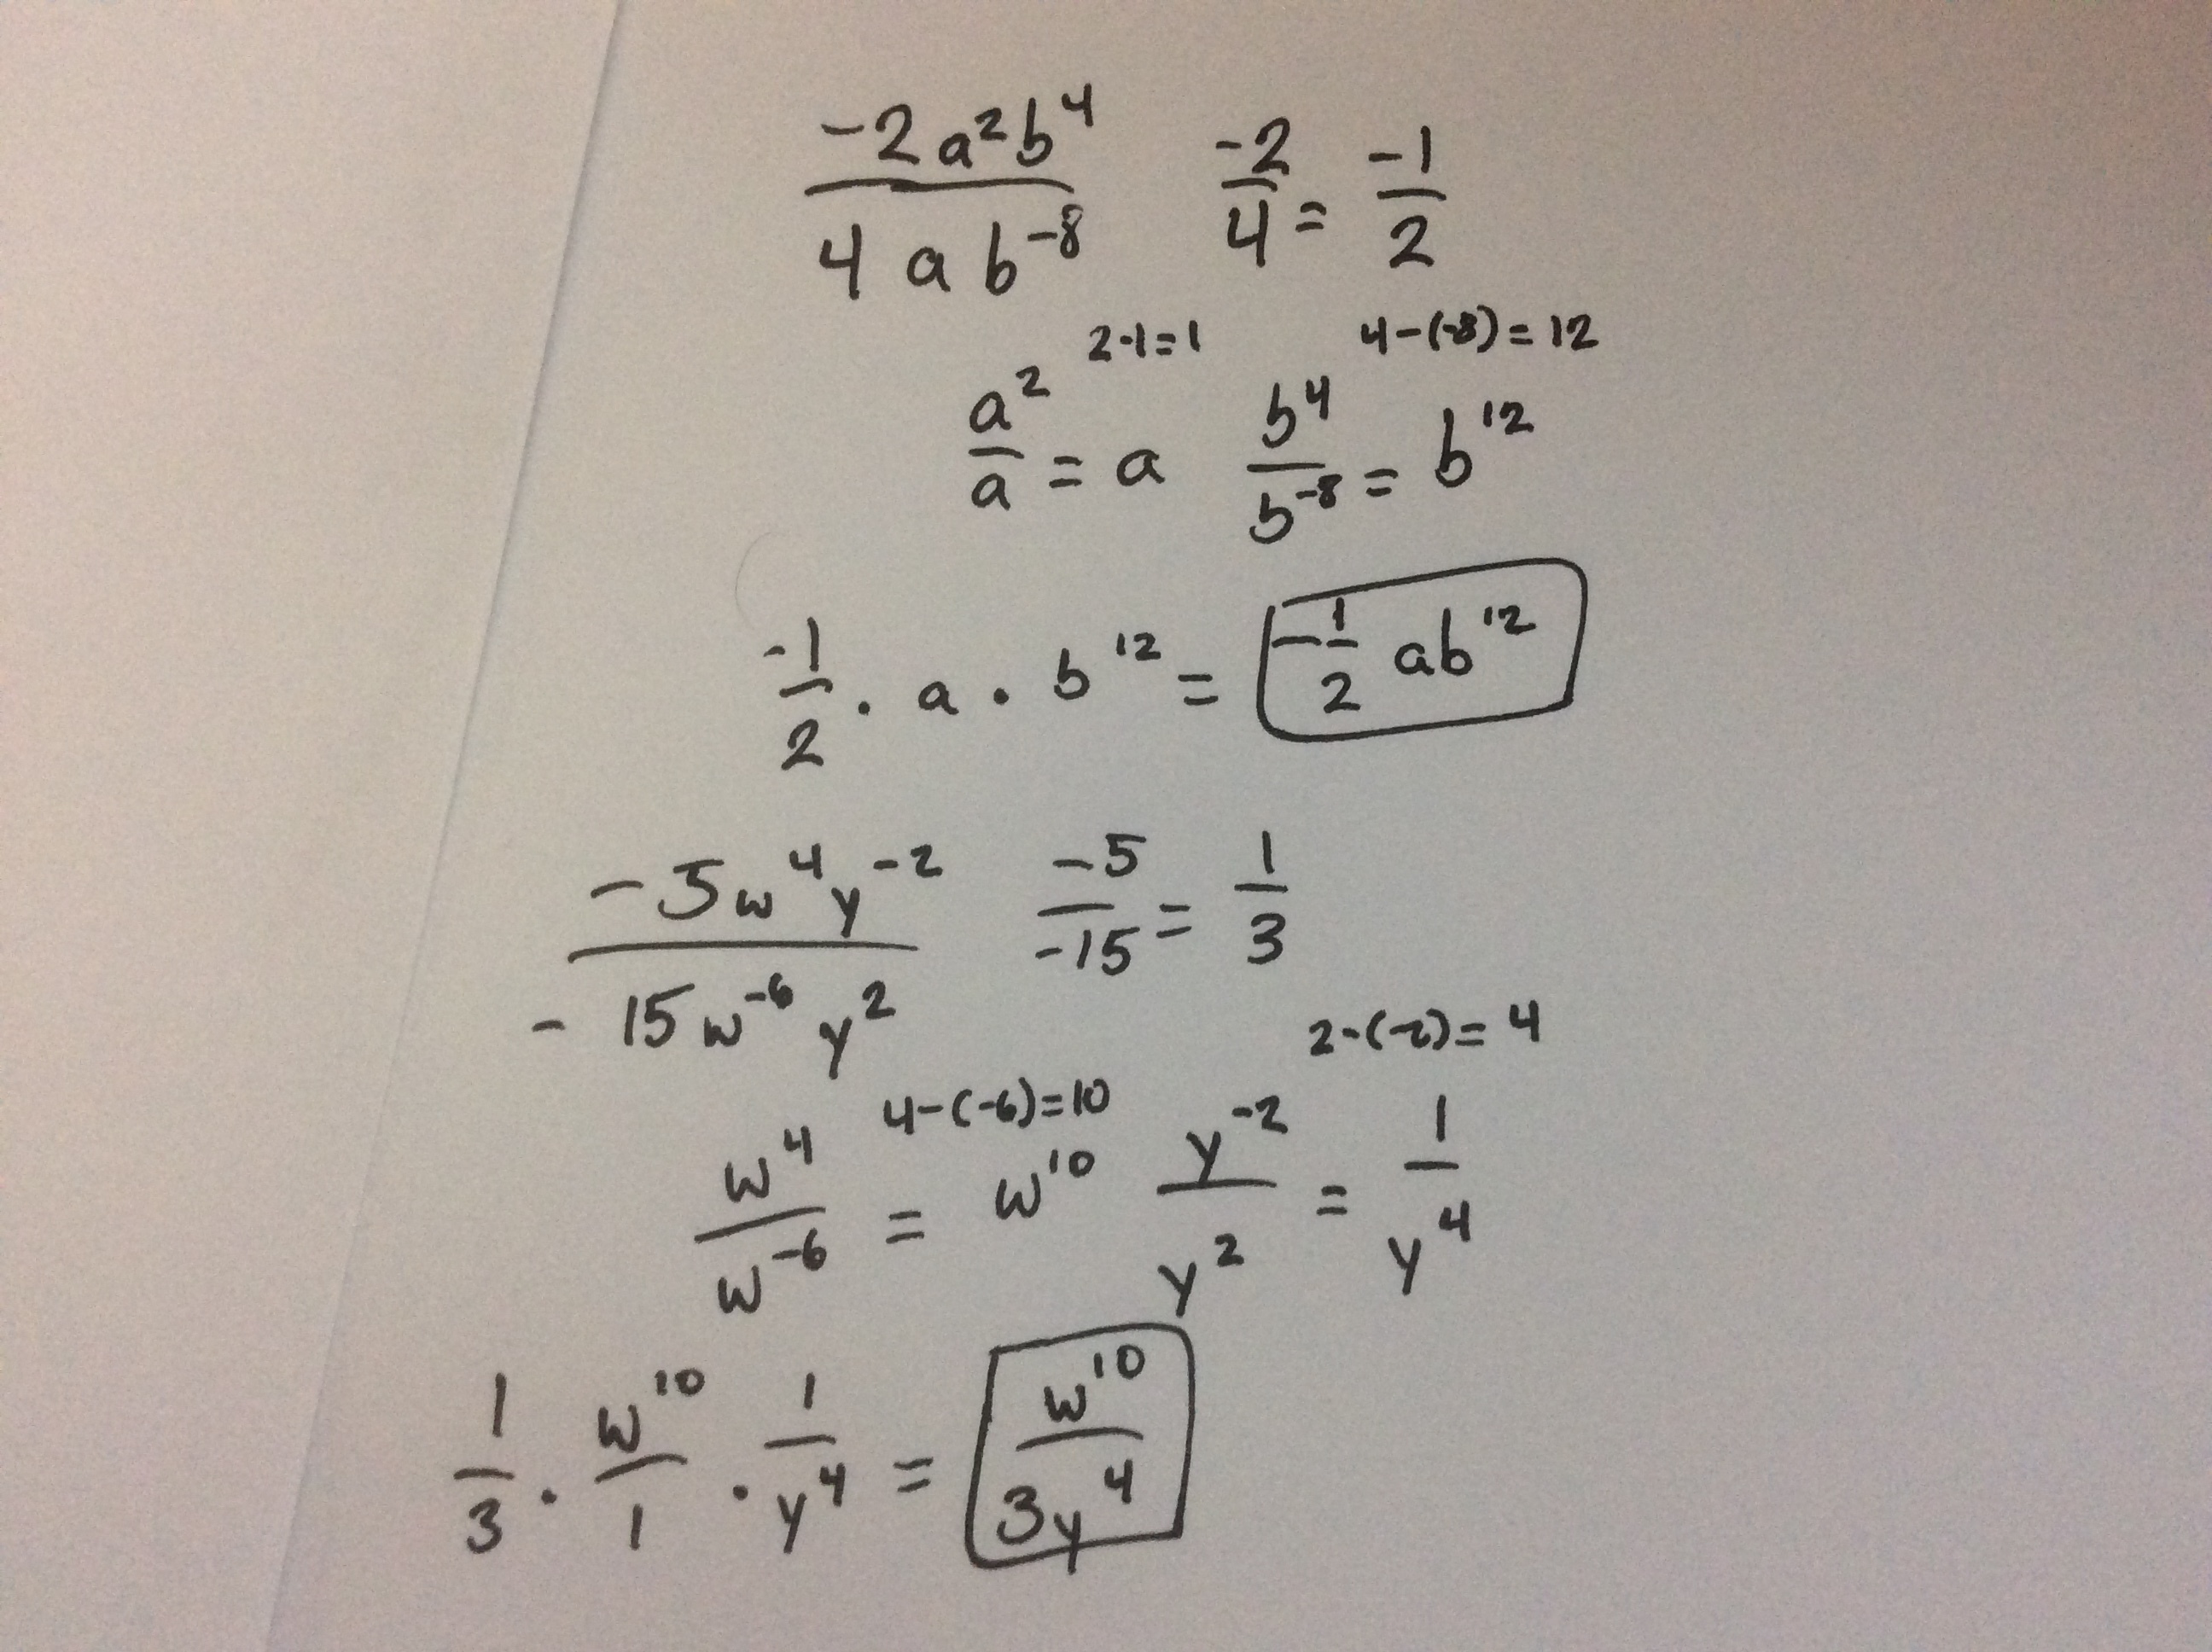 -2a²b⁴/4ab⁻⁸  -2/4 = -1/2
2-1=1  4-(-8)=12
a²/a = a  b⁴/b⁻⁸ = b¹²
-1/2 · a · b¹² = -1/2 ab¹²
-5w⁴y⁻²/-15w⁻⁶y²  -5/-15 = 1/3
4-(-6)=10  2-(-2)=4
w⁴/w⁻⁶ = w¹⁰  y⁻²/y² = 1/y⁴
1/3 · w¹⁰/1 · 1/y⁴ = w¹⁰/3y⁴